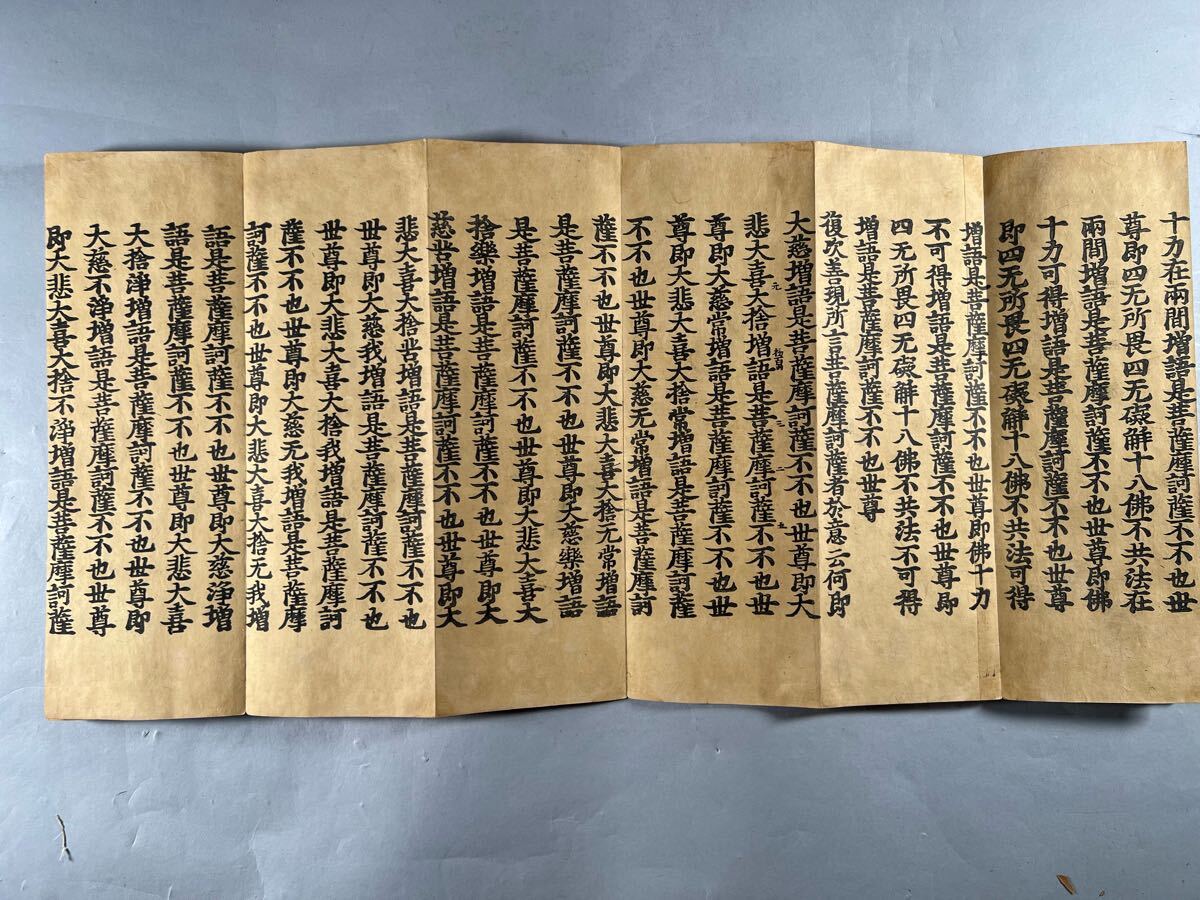 十力在兩間增語是菩薩摩訶薩不不也世
尊即四无所畏四无礙解十八佛不共法在
兩間增語是菩薩摩訶薩不不也世尊即佛
十力可得增語是菩薩摩訶薩不不也世尊
即四无所畏四无礙解十八佛不共法可得
增語是菩薩摩訶薩不不也世尊即佛十力
不可得增語是菩薩摩訶薩不不也世尊即
四无所畏四无礙解十八佛不共法不可得
增語是菩薩摩訶薩不不也世尊
復次善現所言菩薩摩訶薩者於意云何即
大慈增語是菩薩摩訶薩不不也世尊即大
悲大喜大捨增語是菩薩摩訶薩不不也世
尊即大慈常增語是菩薩摩訶薩不不也世
尊即大悲大喜大捨常增語是菩薩摩訶薩
不不也世尊即大慈无常增語是菩薩摩訶
薩不不也世尊即大悲大喜大捨无常增語
是菩薩摩訶薩不不也世尊即大慈樂增語
是菩薩摩訶薩不不也世尊即大悲大喜大
捨樂增語是菩薩摩訶薩不不也世尊即大
慈苦增語是菩薩摩訶薩不不也世尊即大
悲大喜大捨苦增語是菩薩摩訶薩不不也
世尊即大慈我增語是菩薩摩訶薩不不也
世尊即大悲大喜大捨我增語是菩薩摩訶
薩不不也世尊即大慈无我增語是菩薩摩
訶薩不不也世尊即大悲大喜大捨无我增
語是菩薩摩訶薩不不也世尊即大慈淨增
語是菩薩摩訶薩不不也世尊即大悲大喜
大捨淨增語是菩薩摩訶薩不不也世尊即
大慈不淨增語是菩薩摩訶薩不不也世尊
即大悲大喜大捨不淨增語是菩薩摩訶薩